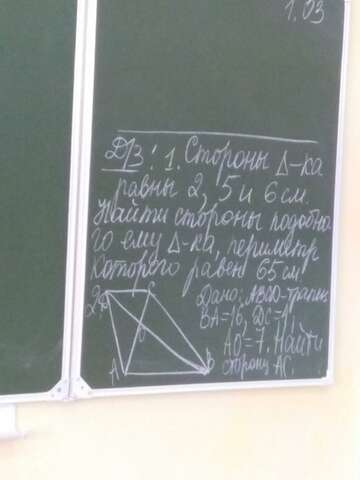 1.03
Д/З: 1. Стороны Δ-ка
равны 2, 5 и 6 см.
Найти стороны подобно
го ему Δ-ка, периметр
которого равен 65 см
2.
D C
O
A B
Дано: ABCD-трапец
BA=16, DC=
AO=7. Найти
сторону AC.